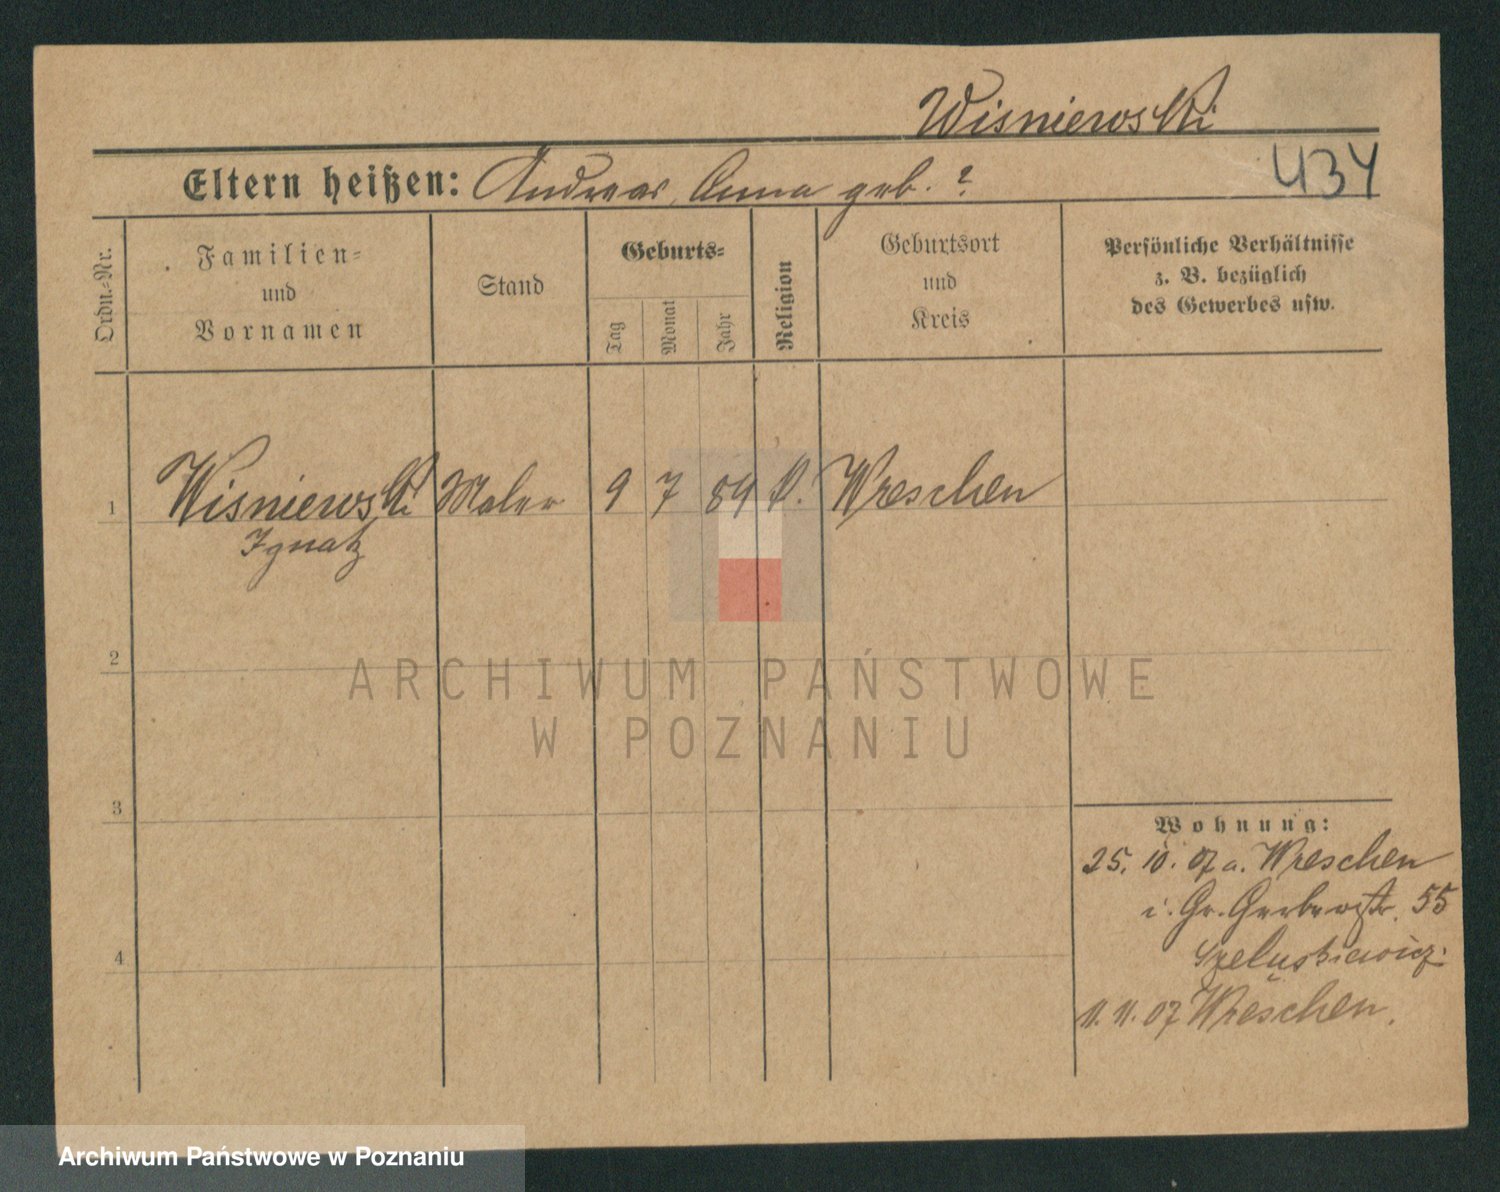 Wisniewski
434
Eltern heißen: Andreas, Anna geb. ?
Ordn.-Nr.
Familien-
und
Vornamen
Stand
Geburts-
Tag
Monat
Jahr
Religion
Geburtsort
und
Kreis
Persönliche Verhältnisse
z. B. bezüglich
des Gewerbes usw.
1 Wisniewski Maler 9 7 84 k. Wreschen
Ignatz
2
3
4
Wohnung:
25. 10. 07 a. Wreschen
i. Gr. Gerberstr. 55
11. 11. 07 Wreschen.
ARCHIWUM PAŃSTWOWE
W POZNANIU
Archiwum Państwowe w Poznaniu